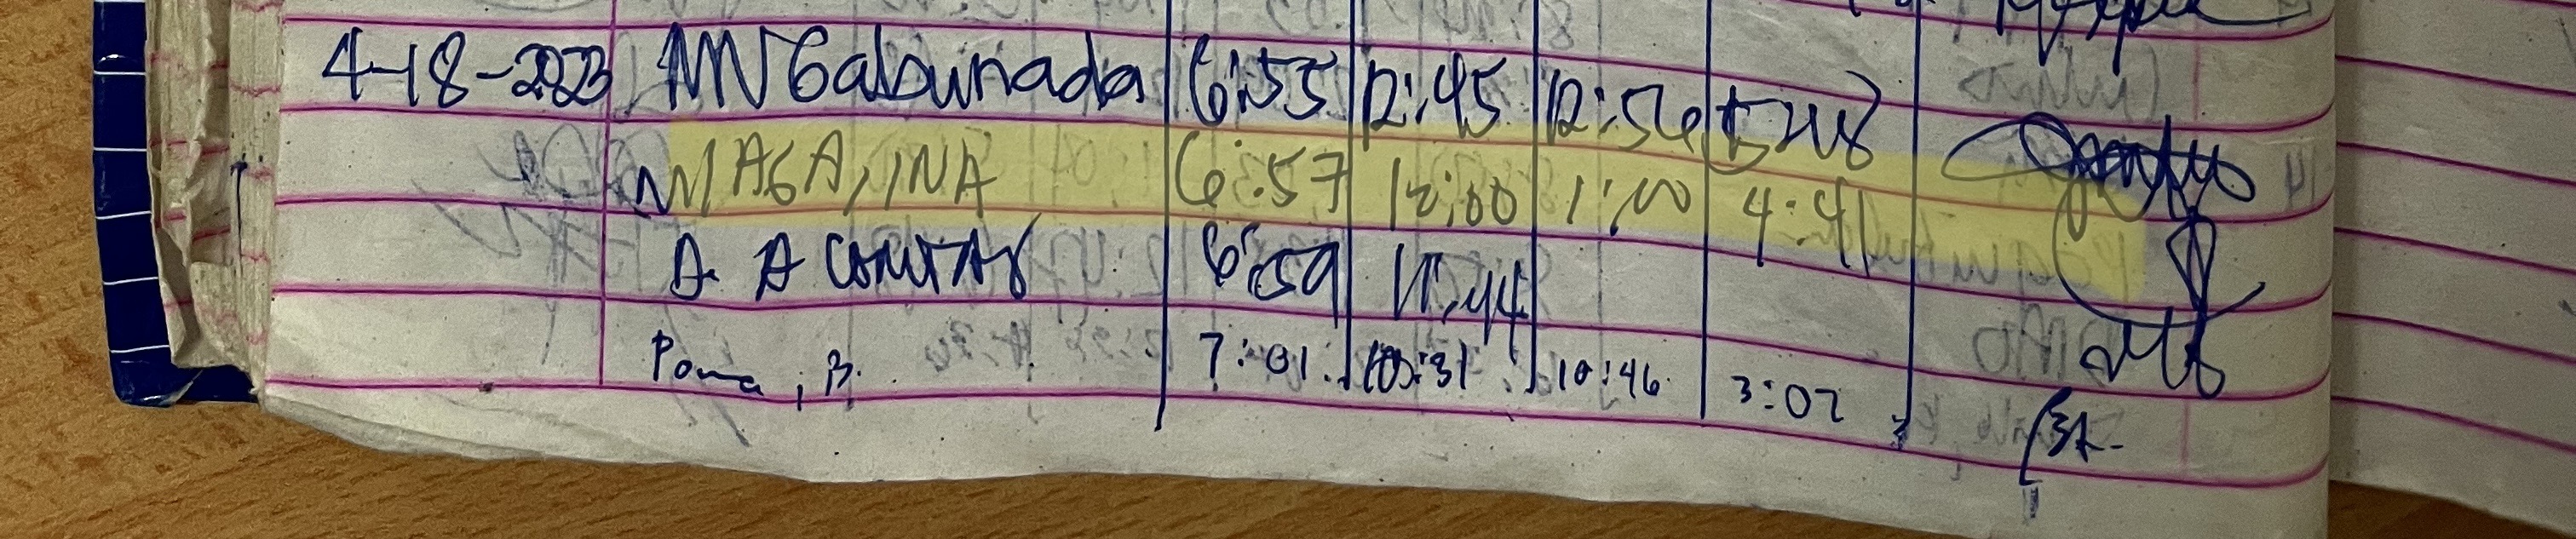 4-18-2023 MV Gabunada 6:55 12:45 12:56 5:08
MAGA, INA 6:57 12:00 1:00 4:41
A. A 6:59 11:44
Poma, B. 7:01 10:31 10:46 3:02